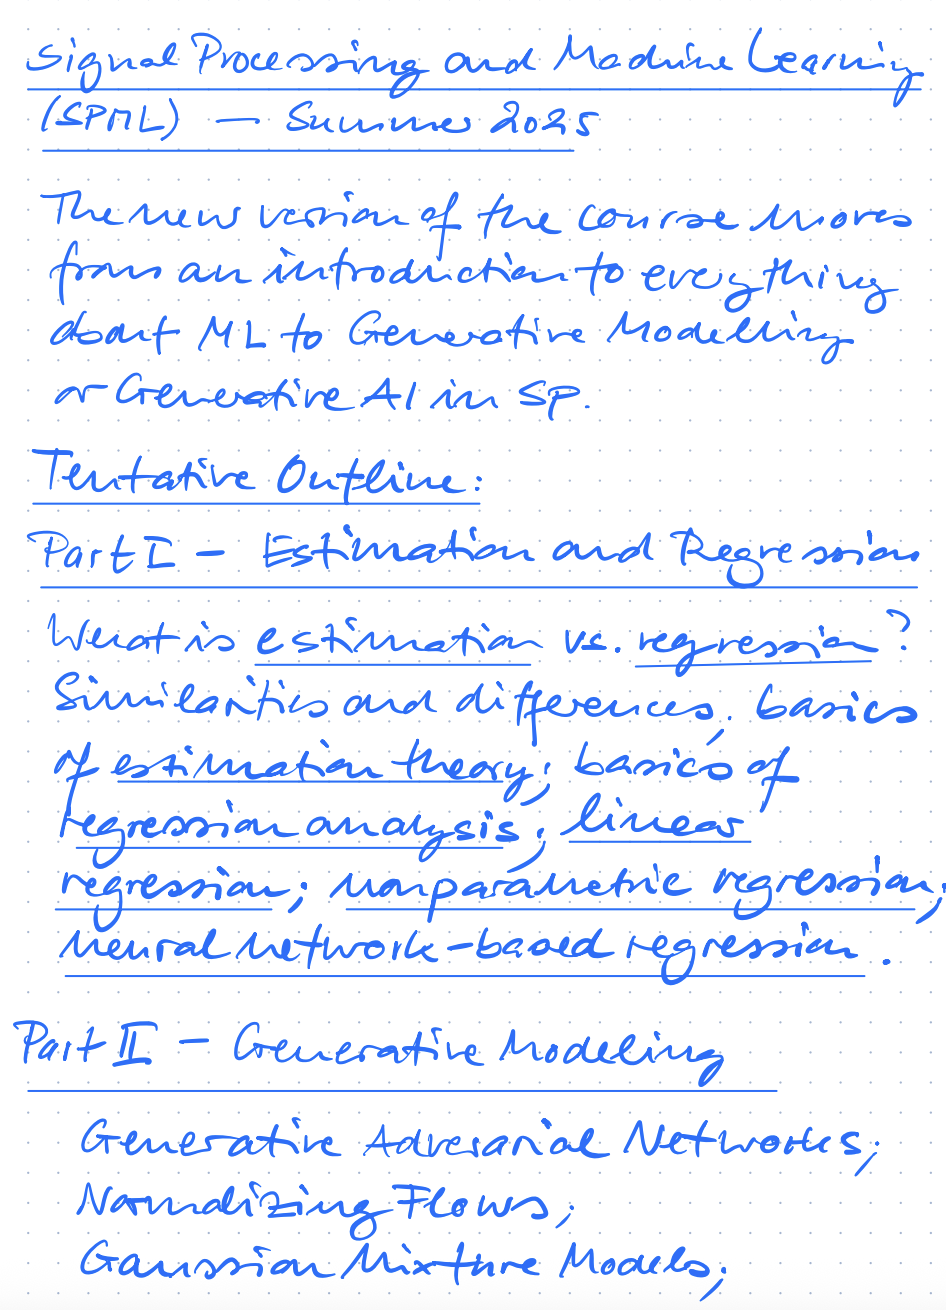 Signal Processing and Machine Learning
(SPML) — Summer 2025
The new version of the course moves
from an introduction to everything
about ML to Generative Modelling
or Generative AI in SP.
Tentative Outline:
Part I – Estimation and Regression
What is estimation vs. regression?
Similarities and differences, basics
of estimation theory; basics of
regression analysis; linear
regression; nonparametric regression;
neural network-based regression.
Part II – Generative Modeling
Generative Adversarial Networks;
Normalizing Flows;
Gaussian Mixture Models;